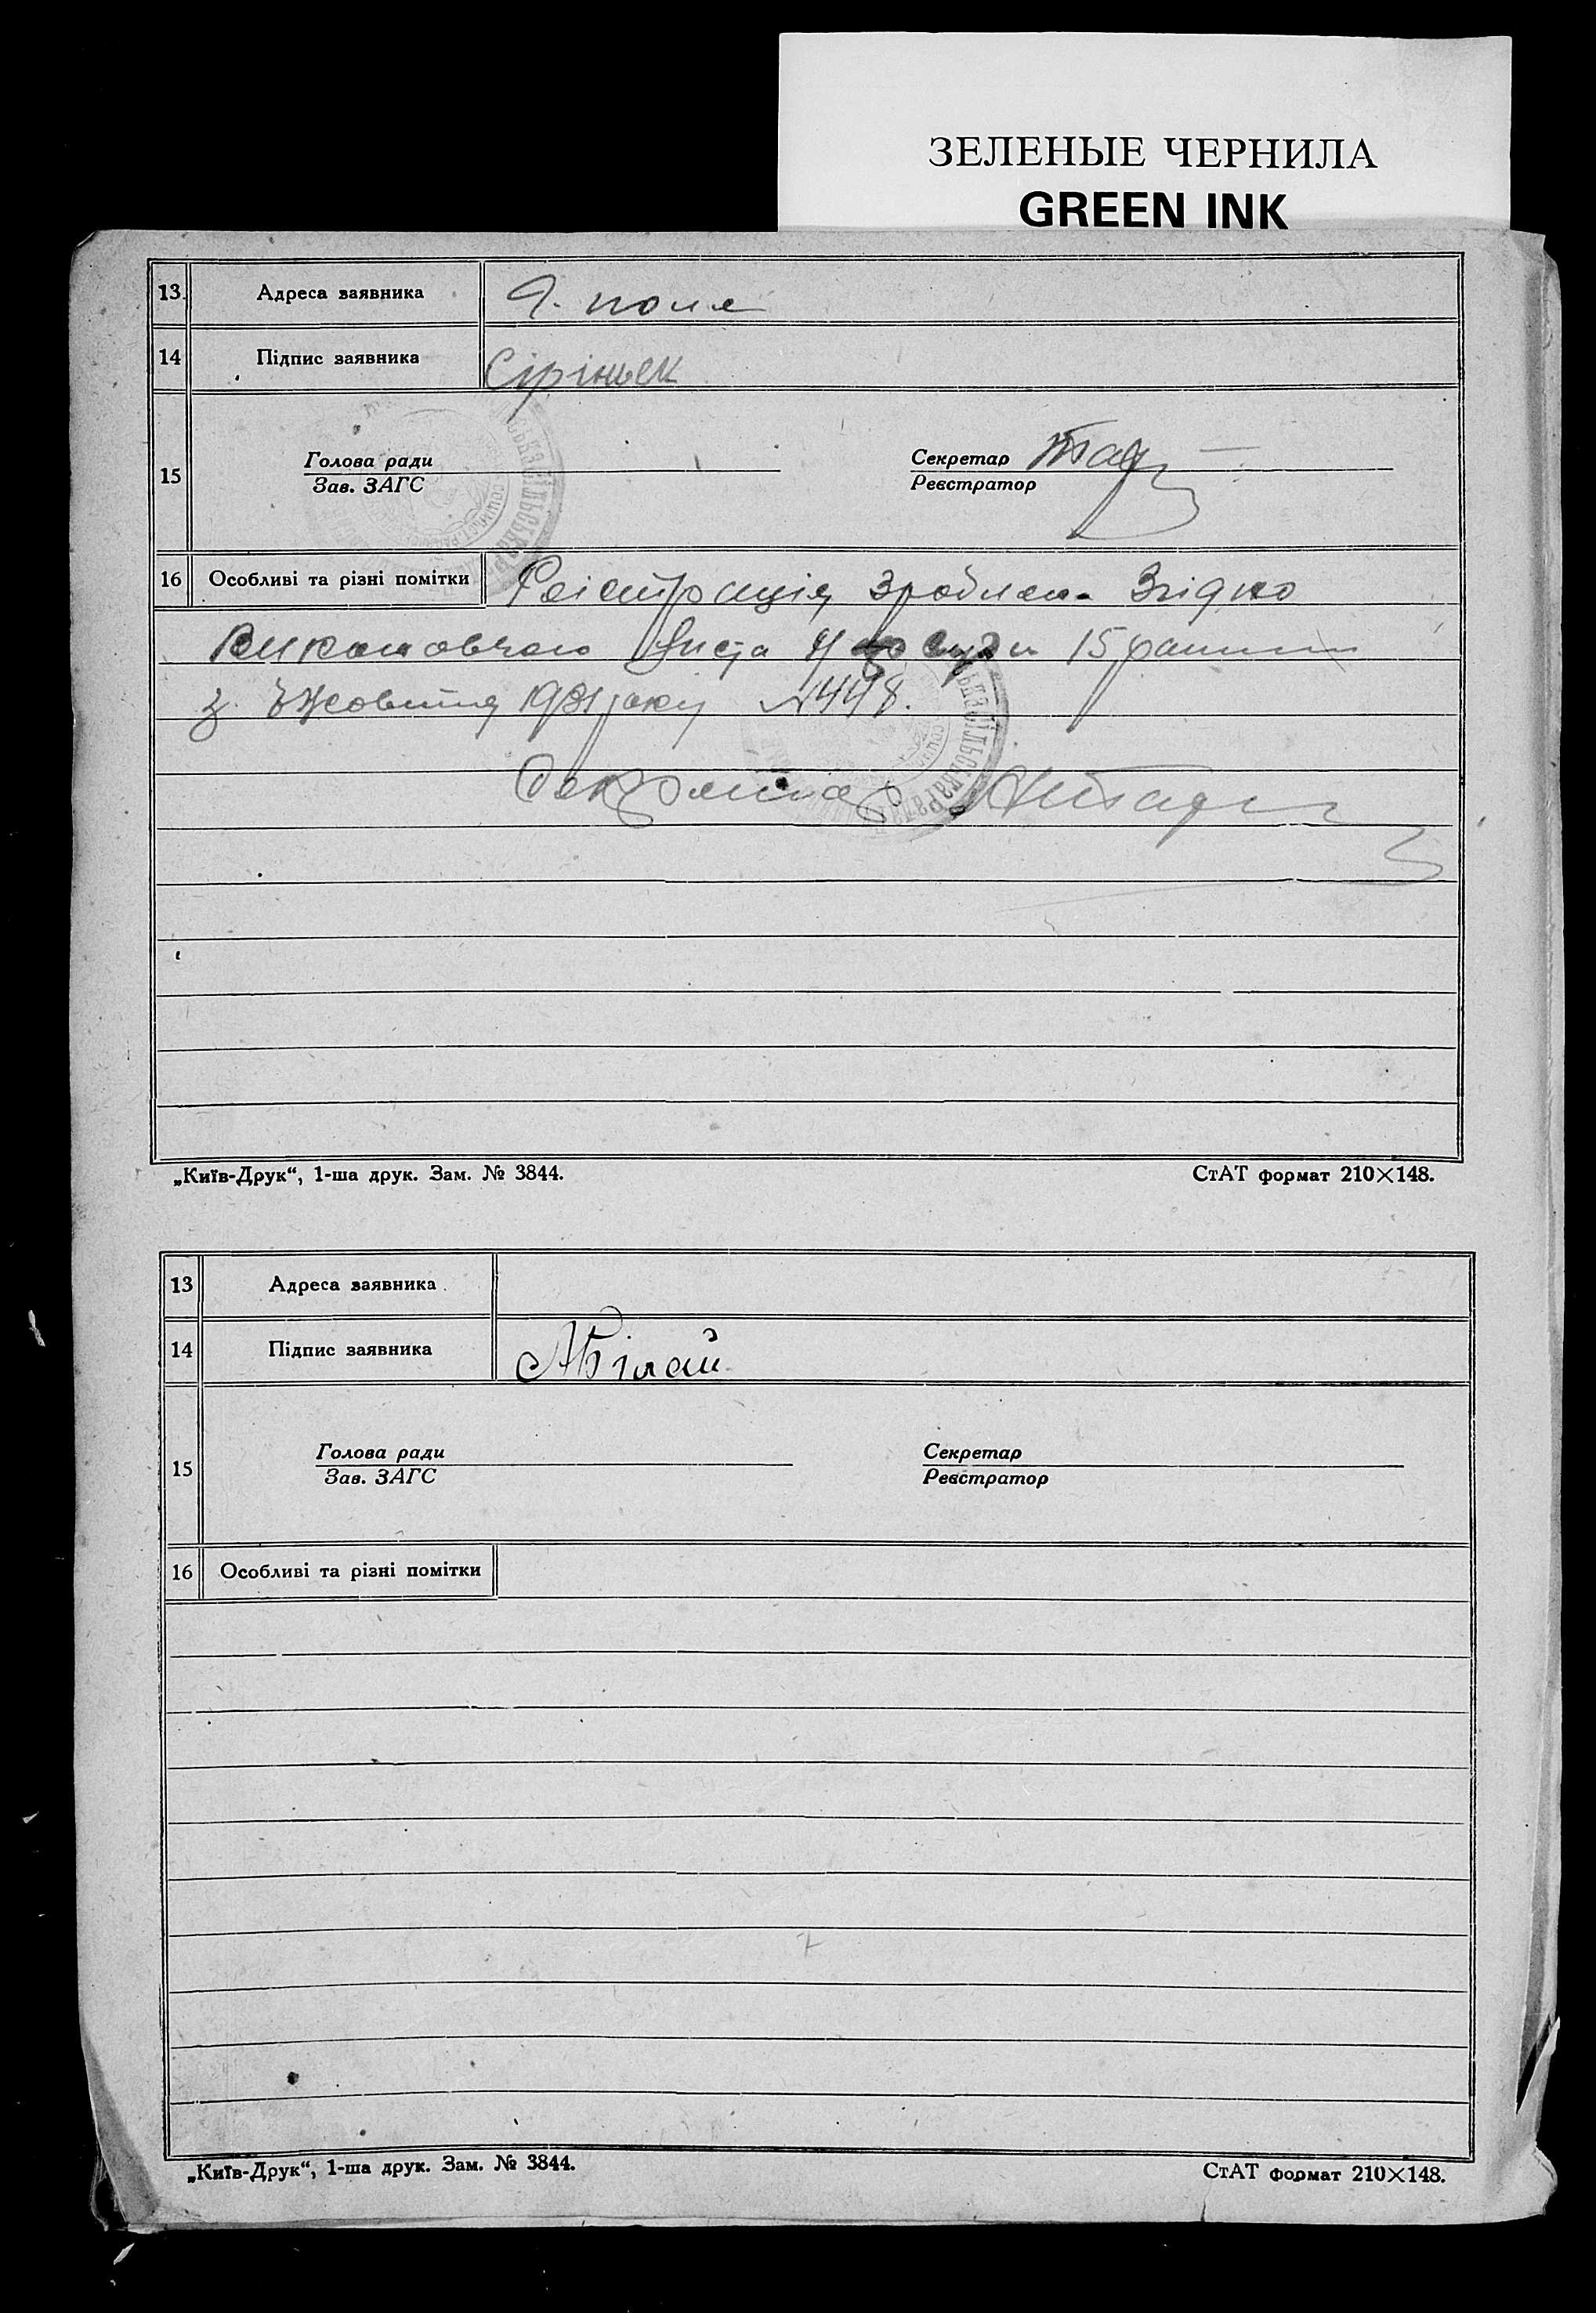 ЗЕЛЕНЫЕ ЧЕРНИЛА
GREEN INK
13. Адреса заявника
14 Підпис заявника Сіріньек
15 Голова ради Секретар
Зав. ЗАГС Реєстратор
16 Особливі та різні помітки Реістрація зроблена Згідно
Виконавчого листа
з Жовтня 1931 року №448.
Секретар
„Київ-Друк“, 1-ша друк. Зам. № 3844. СтАТ формат 210×148.
13 Адреса заявника
14 Підпис заявника АБілай
15 Голова ради Секретар
Зав. ЗАГС Реєстратор
16 Особливі та різні помітки
„Київ-Друк“, 1-ша друк. Зам. № 3844. СтАТ формат 210×148.